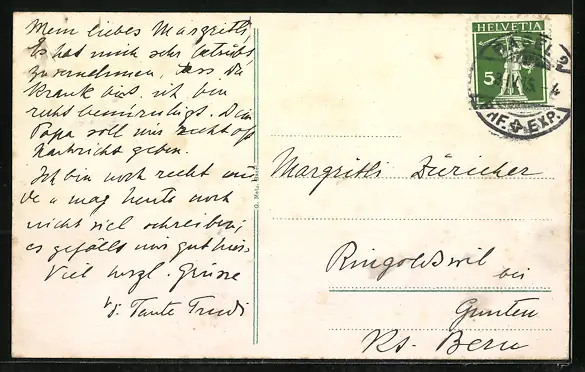 Mein liebes Margritli
Es hat mich sehr betrübt
zu vernehmen, dass Du
krank bist. ich bin
recht beunruhigt. Dein
Papa soll mir recht oft
Nachricht geben.
Ich bin noch recht mü
de u mag heute noch
nicht viel schreiben;
es gefällt mir gut hier.
Viel herzl. Grüsse
v. Tante Trudi
G. Metz, Basel
HELVETIA
5
BASEL 2
BRF. EXP.
Margritli Züricher
Ringoldswil bei
Gunten
Kt. Bern